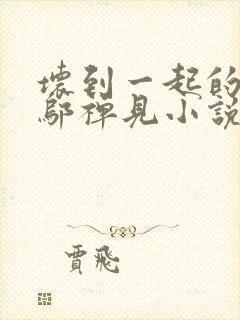 壞到一起的
鄢禪見小說
賈飛